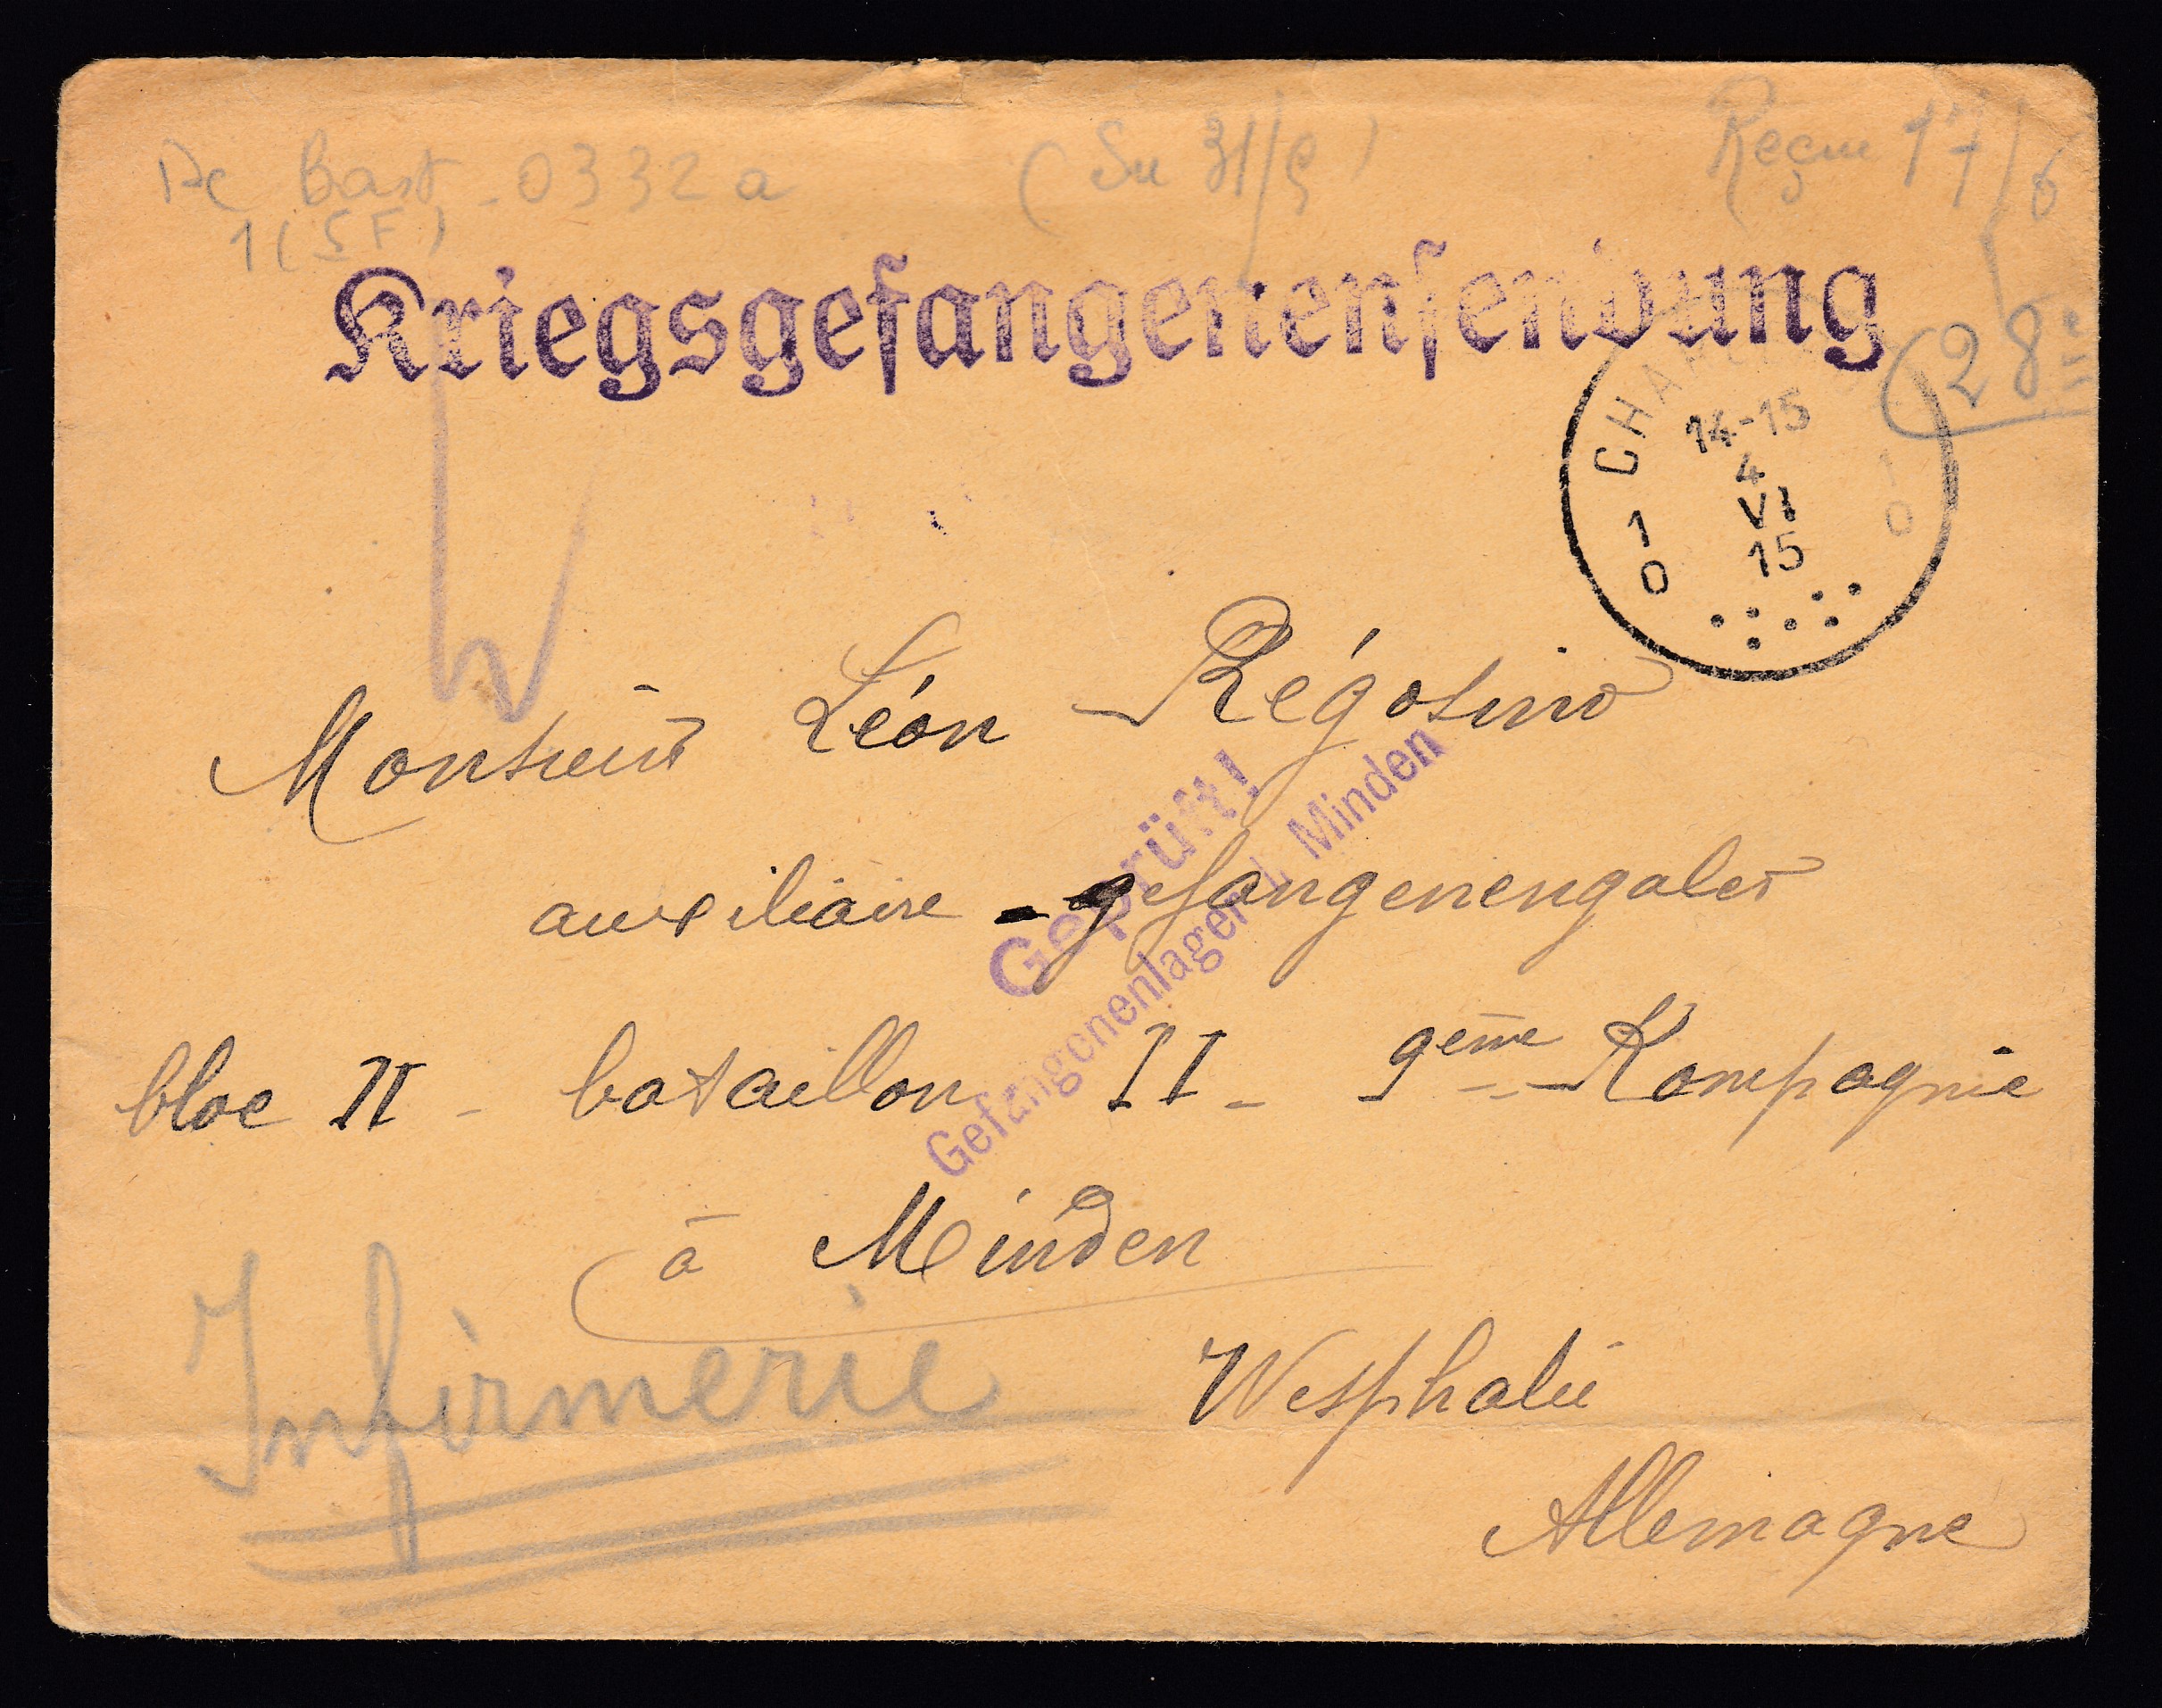 De Bast - 0332 a
1 (SF)
(Du 31/5)
Reçue 17/6
(28e
Kriegsgefangenensendung
14-15
4
VI
15
1 0
1 0
Monsieur Léon Régosino
Geprüft!
Gefangenenlager I. Minden
auxiliaire - gefangenengaler
bloc II - bataillon II - 9ème Kompagnie
à Minden
Infirmerie
Wesphalie
Allemagne